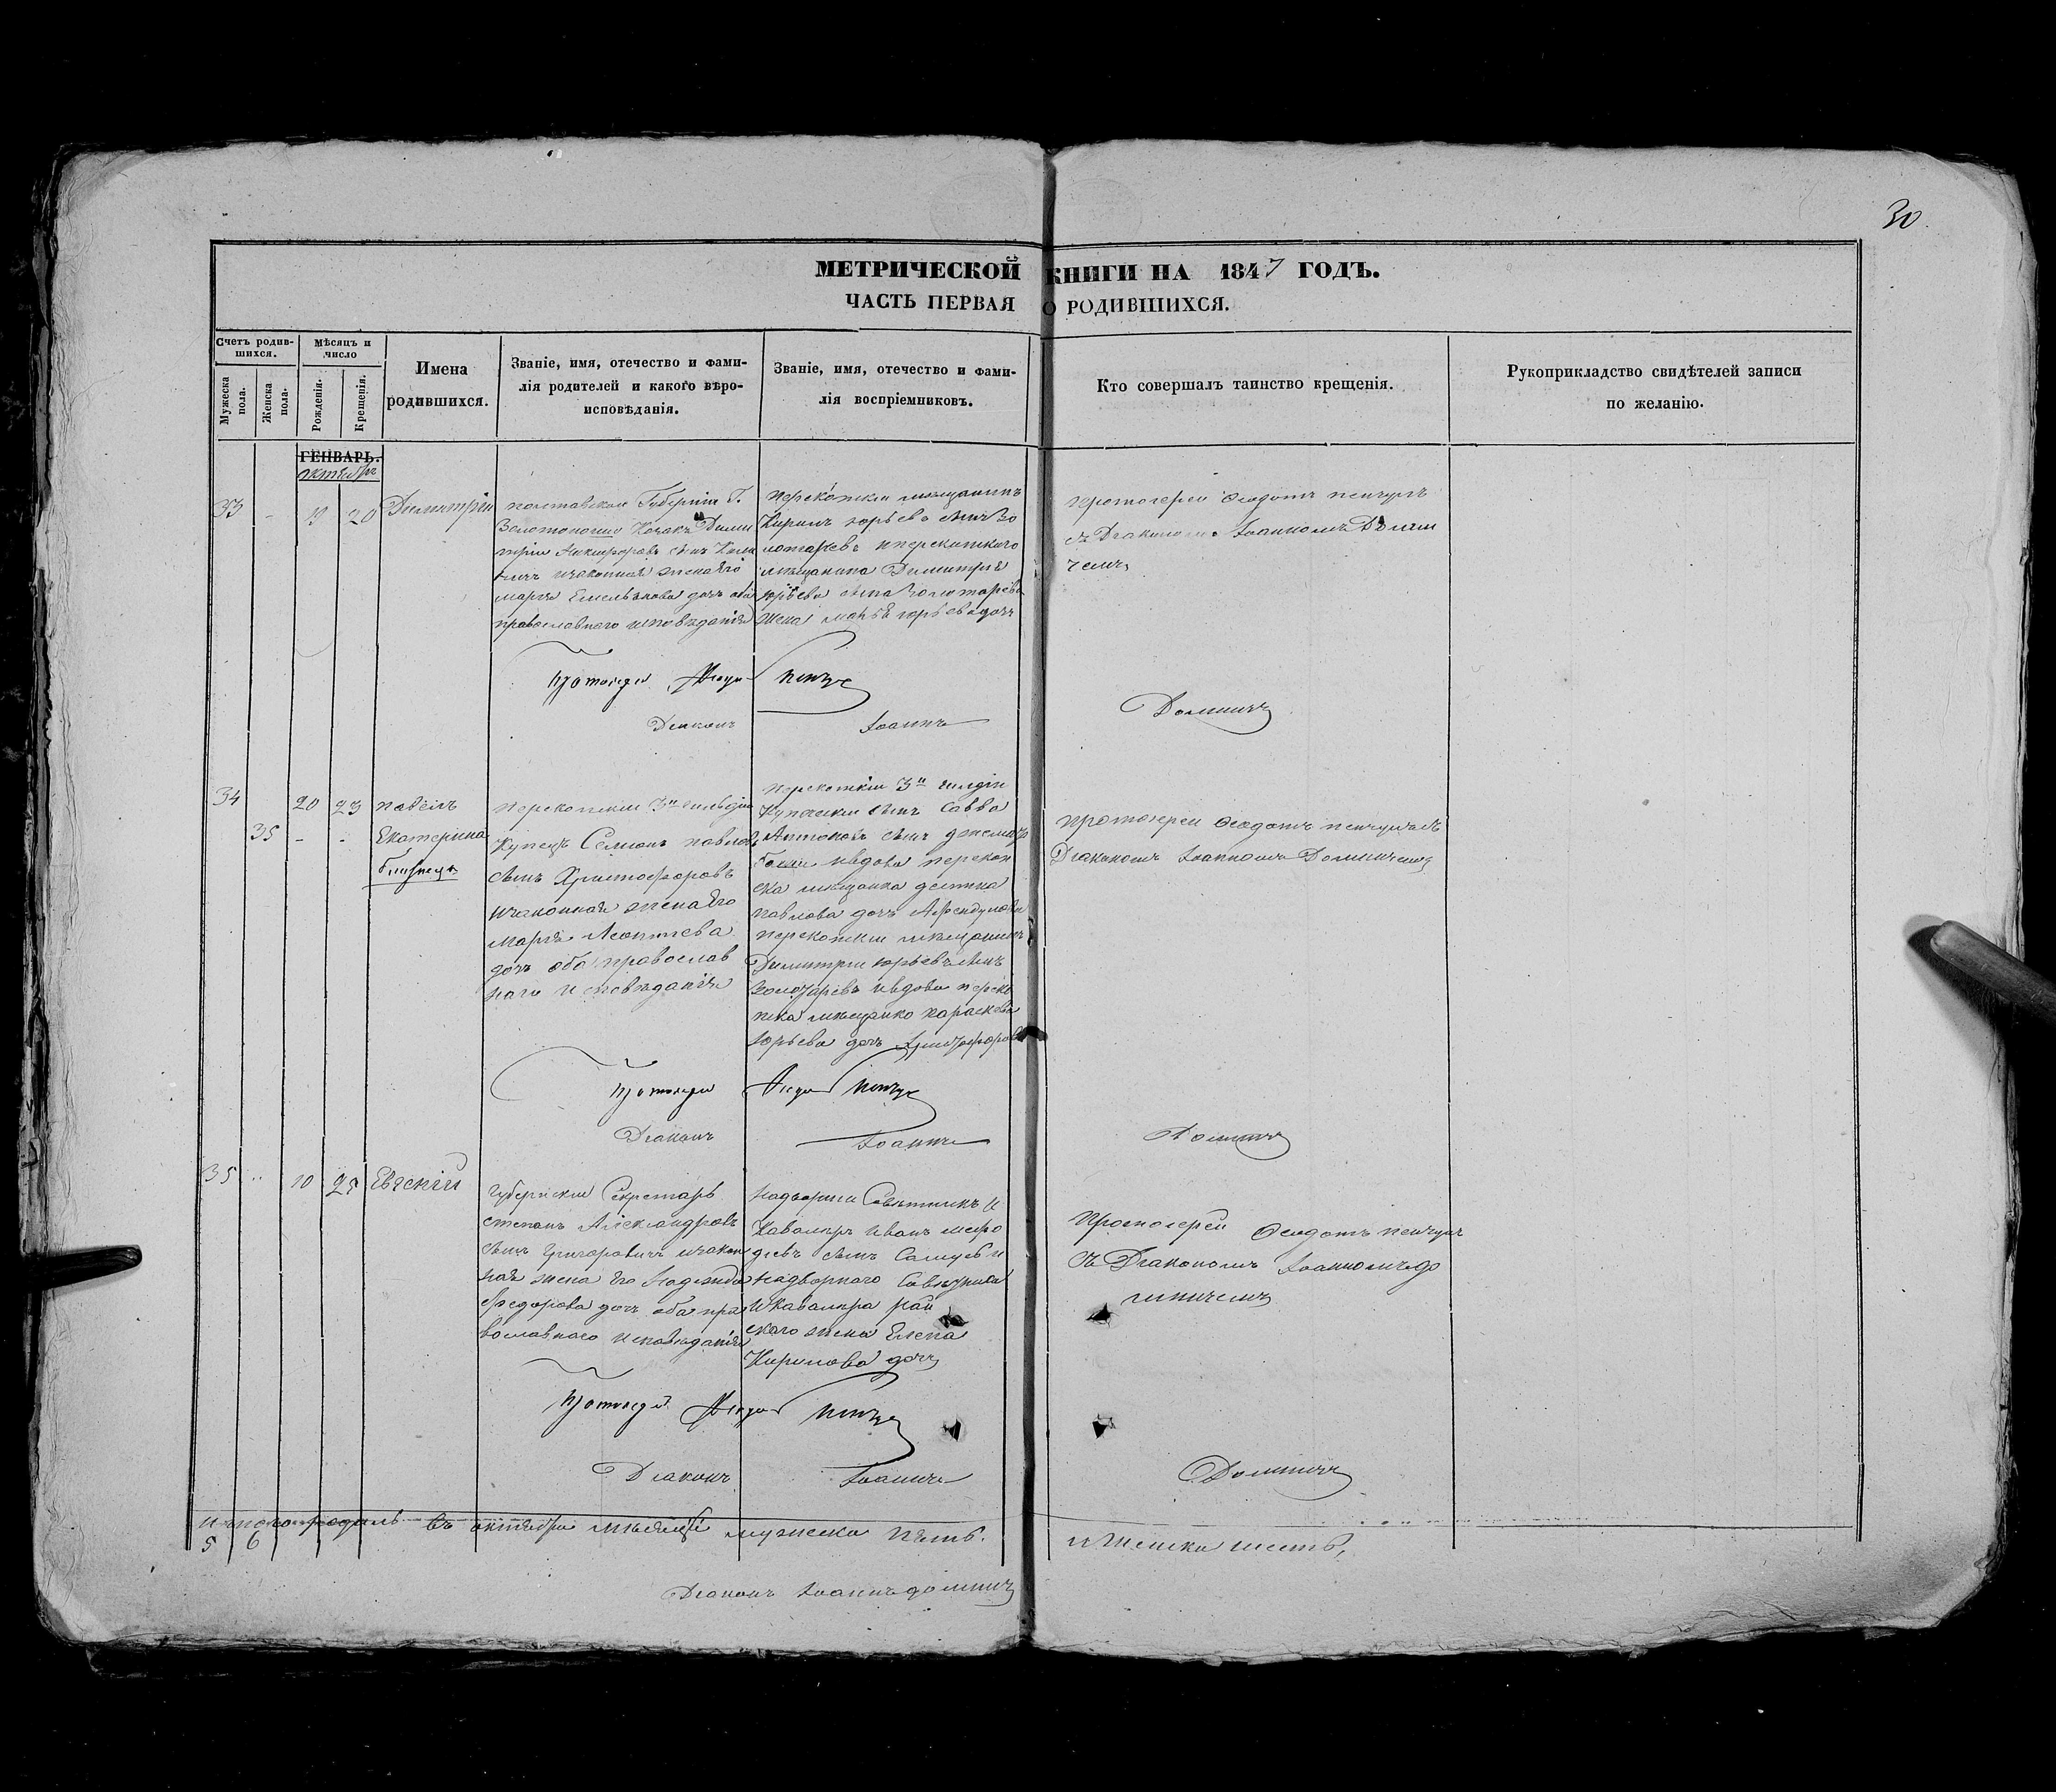 30
МЕТРИЧЕСКОЙ КНИГИ НА 1847 ГОДЪ.
ЧАСТЬ ПЕРВАЯ О РОДИВШИХСЯ.
Счетъ родив-
шихся.
Мужеска
пола.
Женска
пола.
Мѣсяцъ и
число
Рожденія.
Крещенія.
Имена
родившихся.
Званіе, имя, отечество и фами-
лія родителей и какого вѣро-
исповѣданія.
Званіе, имя, отечество и фами-
лія воспріемниковъ.
Кто совершалъ таинство крещенія.
Рукоприкладство свидѣтелей записи
по желанію.
ГЕНВАРЬ.
октябрь
33
20
Димитрій
полтавской Губерніи Г.
Золотоноши Козакъ Дими
трій сынъ
изаконная жена его
марія Емельянова дочь оба
православнаго исповѣданія
перекопскій мѣщанинъ
юрьевъ сынъ Зо
лотаревъ иперекопскаго
мѣщанина Димитрія
юрьева сына Золотарева
жена юрьева дочь
протоіерей Ѳеодотъ
съ Діакономъ Іоанномъ Долин
чемъ
Протоіерей
Діаконъ Іоаннъ Долиничъ
34
20 23
павелъ
перекопскій 3й гильдіи
купецъ Семіонъ павловъ
сынъ Христофоровъ
изаконная жена его
марія Леонтіева
дочь оба православ
наго исповѣданія
35
Екатерина
близнецы
перекопскій 3й гилдіи
купеческій сынъ Савва
Антоновъ сынъ
ивдова перекоп
ска мѣщанка
павлова дочь
перекопскій мѣщанинъ
Димитрій юрьевъ сынъ
Золотаревъ ивдова переко
пска мѣщанко параскева
юрьева дочь Христофорова
протоіерей Ѳеодотъ
Діакономъ Іоанномъ Долиничемъ
Протоіерей
Діаконъ Іоаннъ Долиничъ
35
10 25
Евгеній
Губернскій Секретарь
степанъ Александровъ
сынъ Григоровичъ изакон
ная жена его Надежда
Федорова дочь оба пра
вославного исповѣданія
Надворный Совѣтникъ и
Кавалиръ Иванъ мефо
діевъ сынъ
надворного Совѣтника
икавалира рай
ского жена Елена
Кирилова дочь
Протоіерей Ѳеодотъ
съ Діакономъ Іоанномъ до
линичемъ
Протоіерей
Діаконъ Іоаннъ Долиничъ
въ октябрѣ мѣсяцѣ мужеска пять. и женска шесть,
5 6
Діаконъ Іоаннъ долиничъ